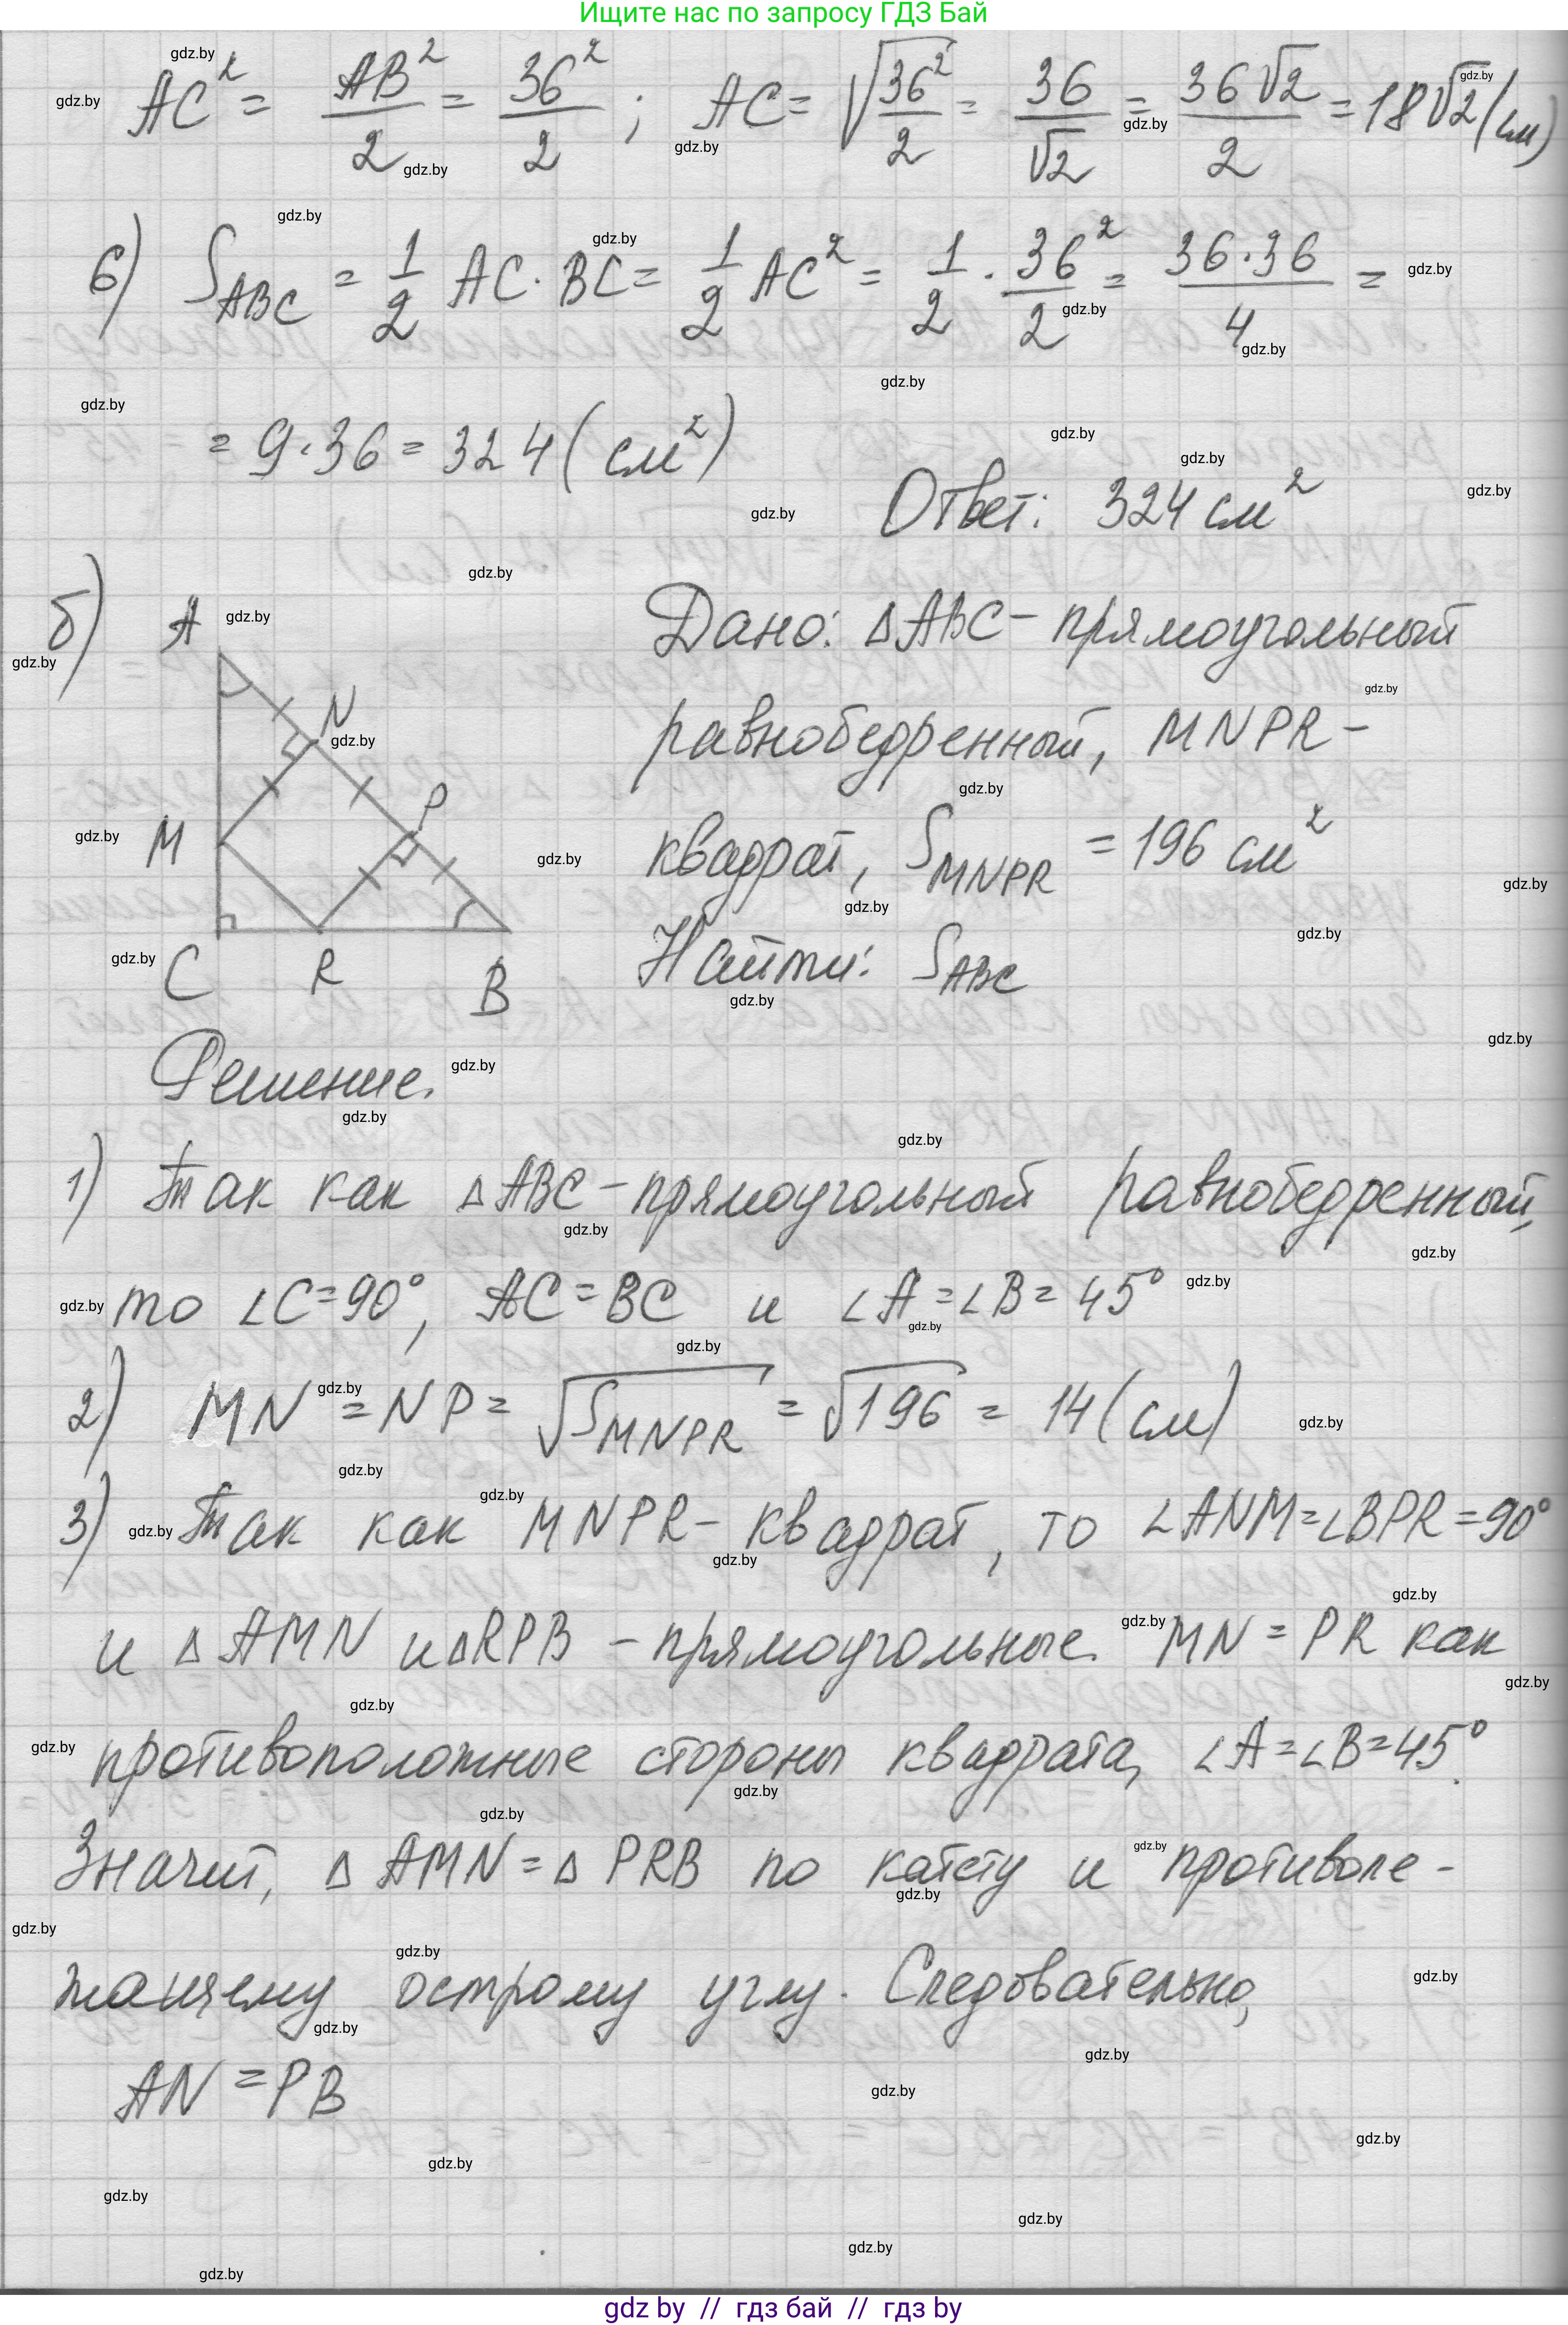 Ищите нас по запросу ГДЗ Бай
AC² = AB²/2 = 36²/2 ; AC = √(36²/2) = 36/√2 = 36√2/2 = 18√2 (см)
6) S_ABC = 1/2 AC · BC = 1/2 AC² = 1/2 · 36²/2 = 36·36/4 =
= 9·36 = 324 (см²)
Ответ: 324 см²
б) Дано: ΔABC – прямоугольный
равнобедренный, MNPR –
квадрат, S_MNPR = 196 см²
Найти: S_ABC
A
N
P
M
C R B
Решение.
1) Так как ΔABC – прямоугольный равнобедренный,
то ∠C = 90°, AC = BC и ∠A = ∠B = 45°
2) MN = NP = √S_MNPR = √196 = 14 (см)
3) Так как MNPR – квадрат, то ∠ANM = ∠BPR = 90°
и ΔAMN и ΔRPB – прямоугольные. MN = PR как
противоположные стороны квадрата, ∠A = ∠B = 45°.
Значит, ΔAMN = ΔPRB по катету и противоле-
жащему острому углу. Следовательно,
AN = PB
gdz by // гдз бай // гдз by